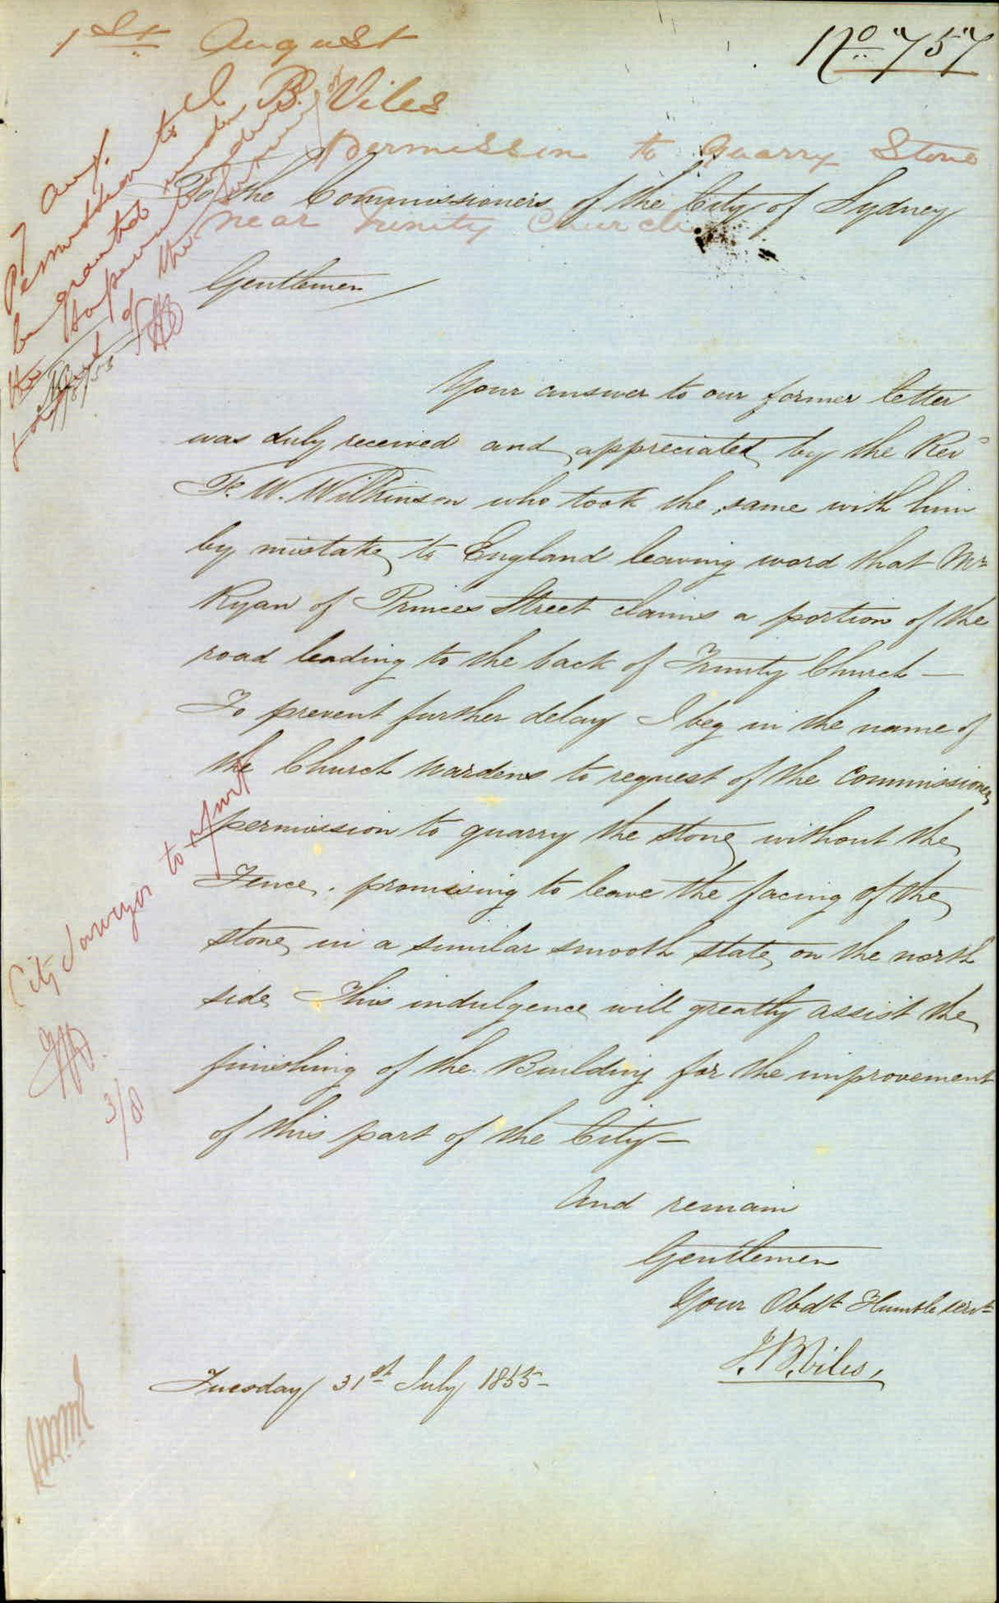 1st August
No. 757
J. B. Viles
Permission to Quarry Stone
near Trinity Church
7 Aug.
Permission to
be granted under
the Superintendence
of the Surveyor
To the Commissioners of the City of Sydney
Gentlemen
Your answer to our former letter
was duly received and appreciated by the Revd
F. W. Wilkinson who took the same with him
by mistake to England leaving word that Mr
Ryan of Princes Street claims a portion of the
road leading to the back of Trinity Church —
To prevent further delay I beg in the name of
the Church Wardens to request of the Commissioners
permission to quarry the stone without the
Fence. promising to leave the facing of the
stone in a similar smooth state on the north
side This indulgence will greatly assist the
finishing of the Building for the improvement
of this part of the City —
City Surveyor to report
3/8
And remain
Gentlemen
Your Obdt Humble servt
J. B. Viles,
Tuesday 31st July 1855 —